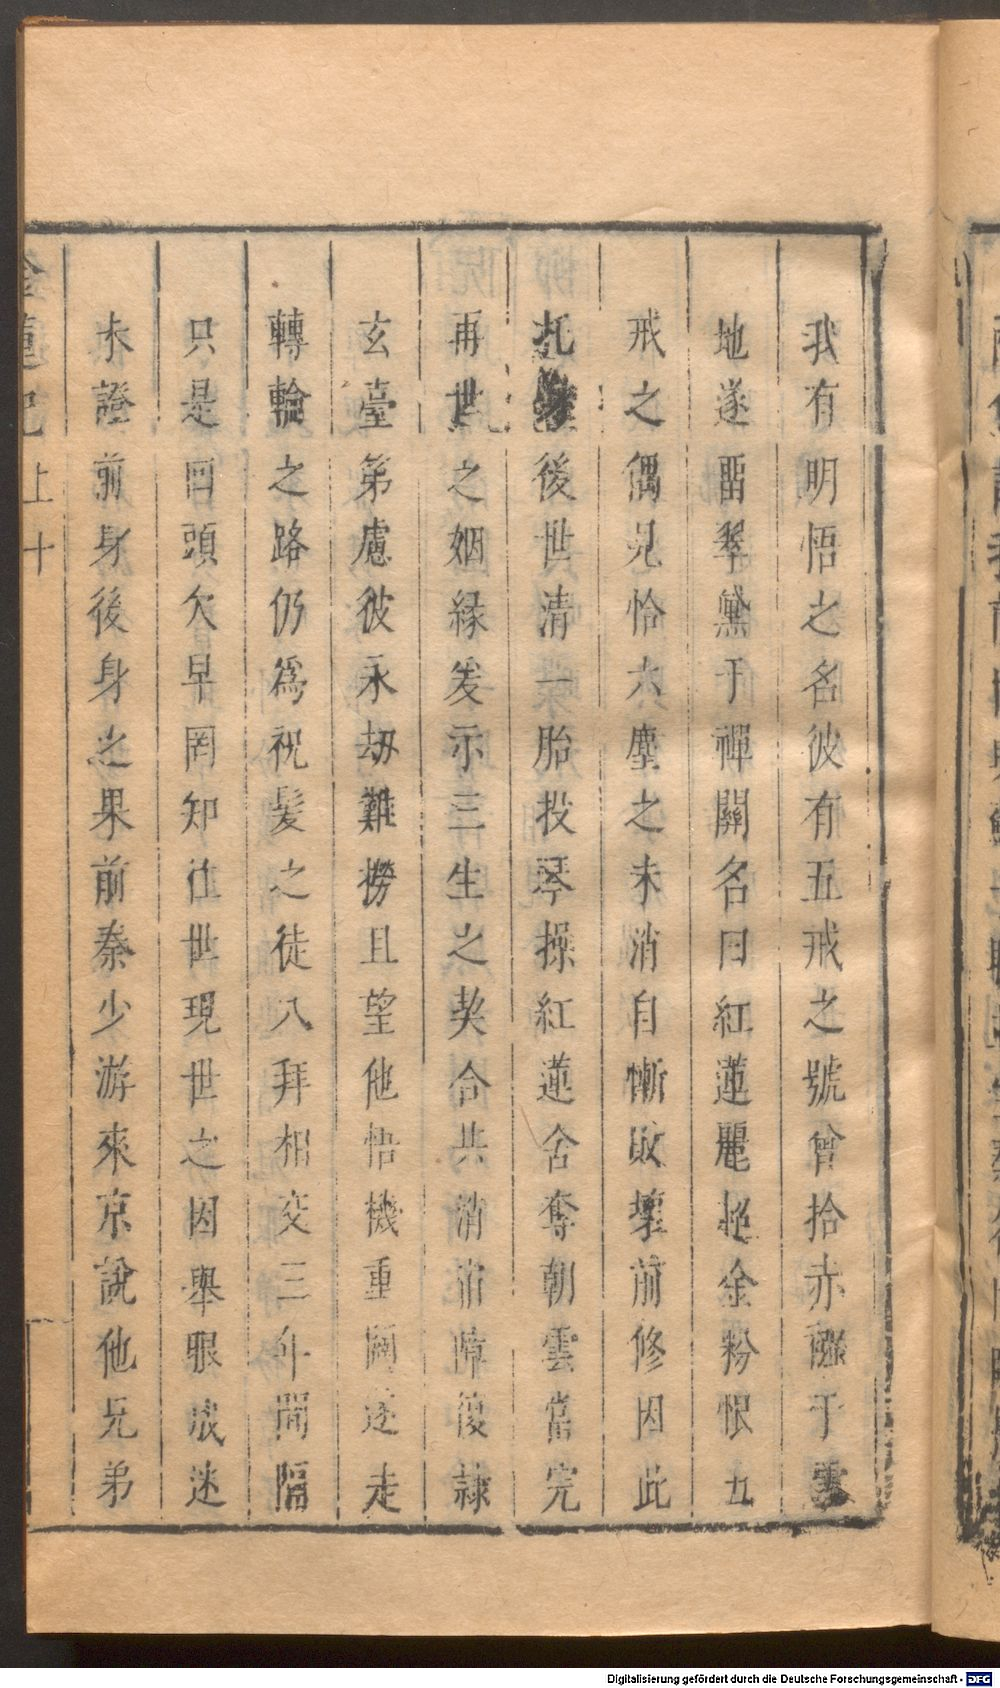 我有明悟之名彼有五戒之號曾拾赤𨤲于雲
地遂畱翠黛于禪關名曰紅蓮麗超金粉恨五
戒之偶兄恰六塵之未消自慚敗壞前修因此
托後世清一胎投琴操紅蓮舍奪朝雲當完
再世之姻緣爰示三生之契合共消宿障復隸
玄臺第慮彼永劫難撈且望他悟機重闢遂走
轉輪之路仍爲祝髪之徒八拜相交三年間隔
只是回頭欠早罔知往世現世之因舉眼成迷
未證前身後身之果前秦少游來京說他兄弟
金蓮記 上 十
Digitalisierung gefördert durch die Deutsche Forschungsgemeinschaft - DFG